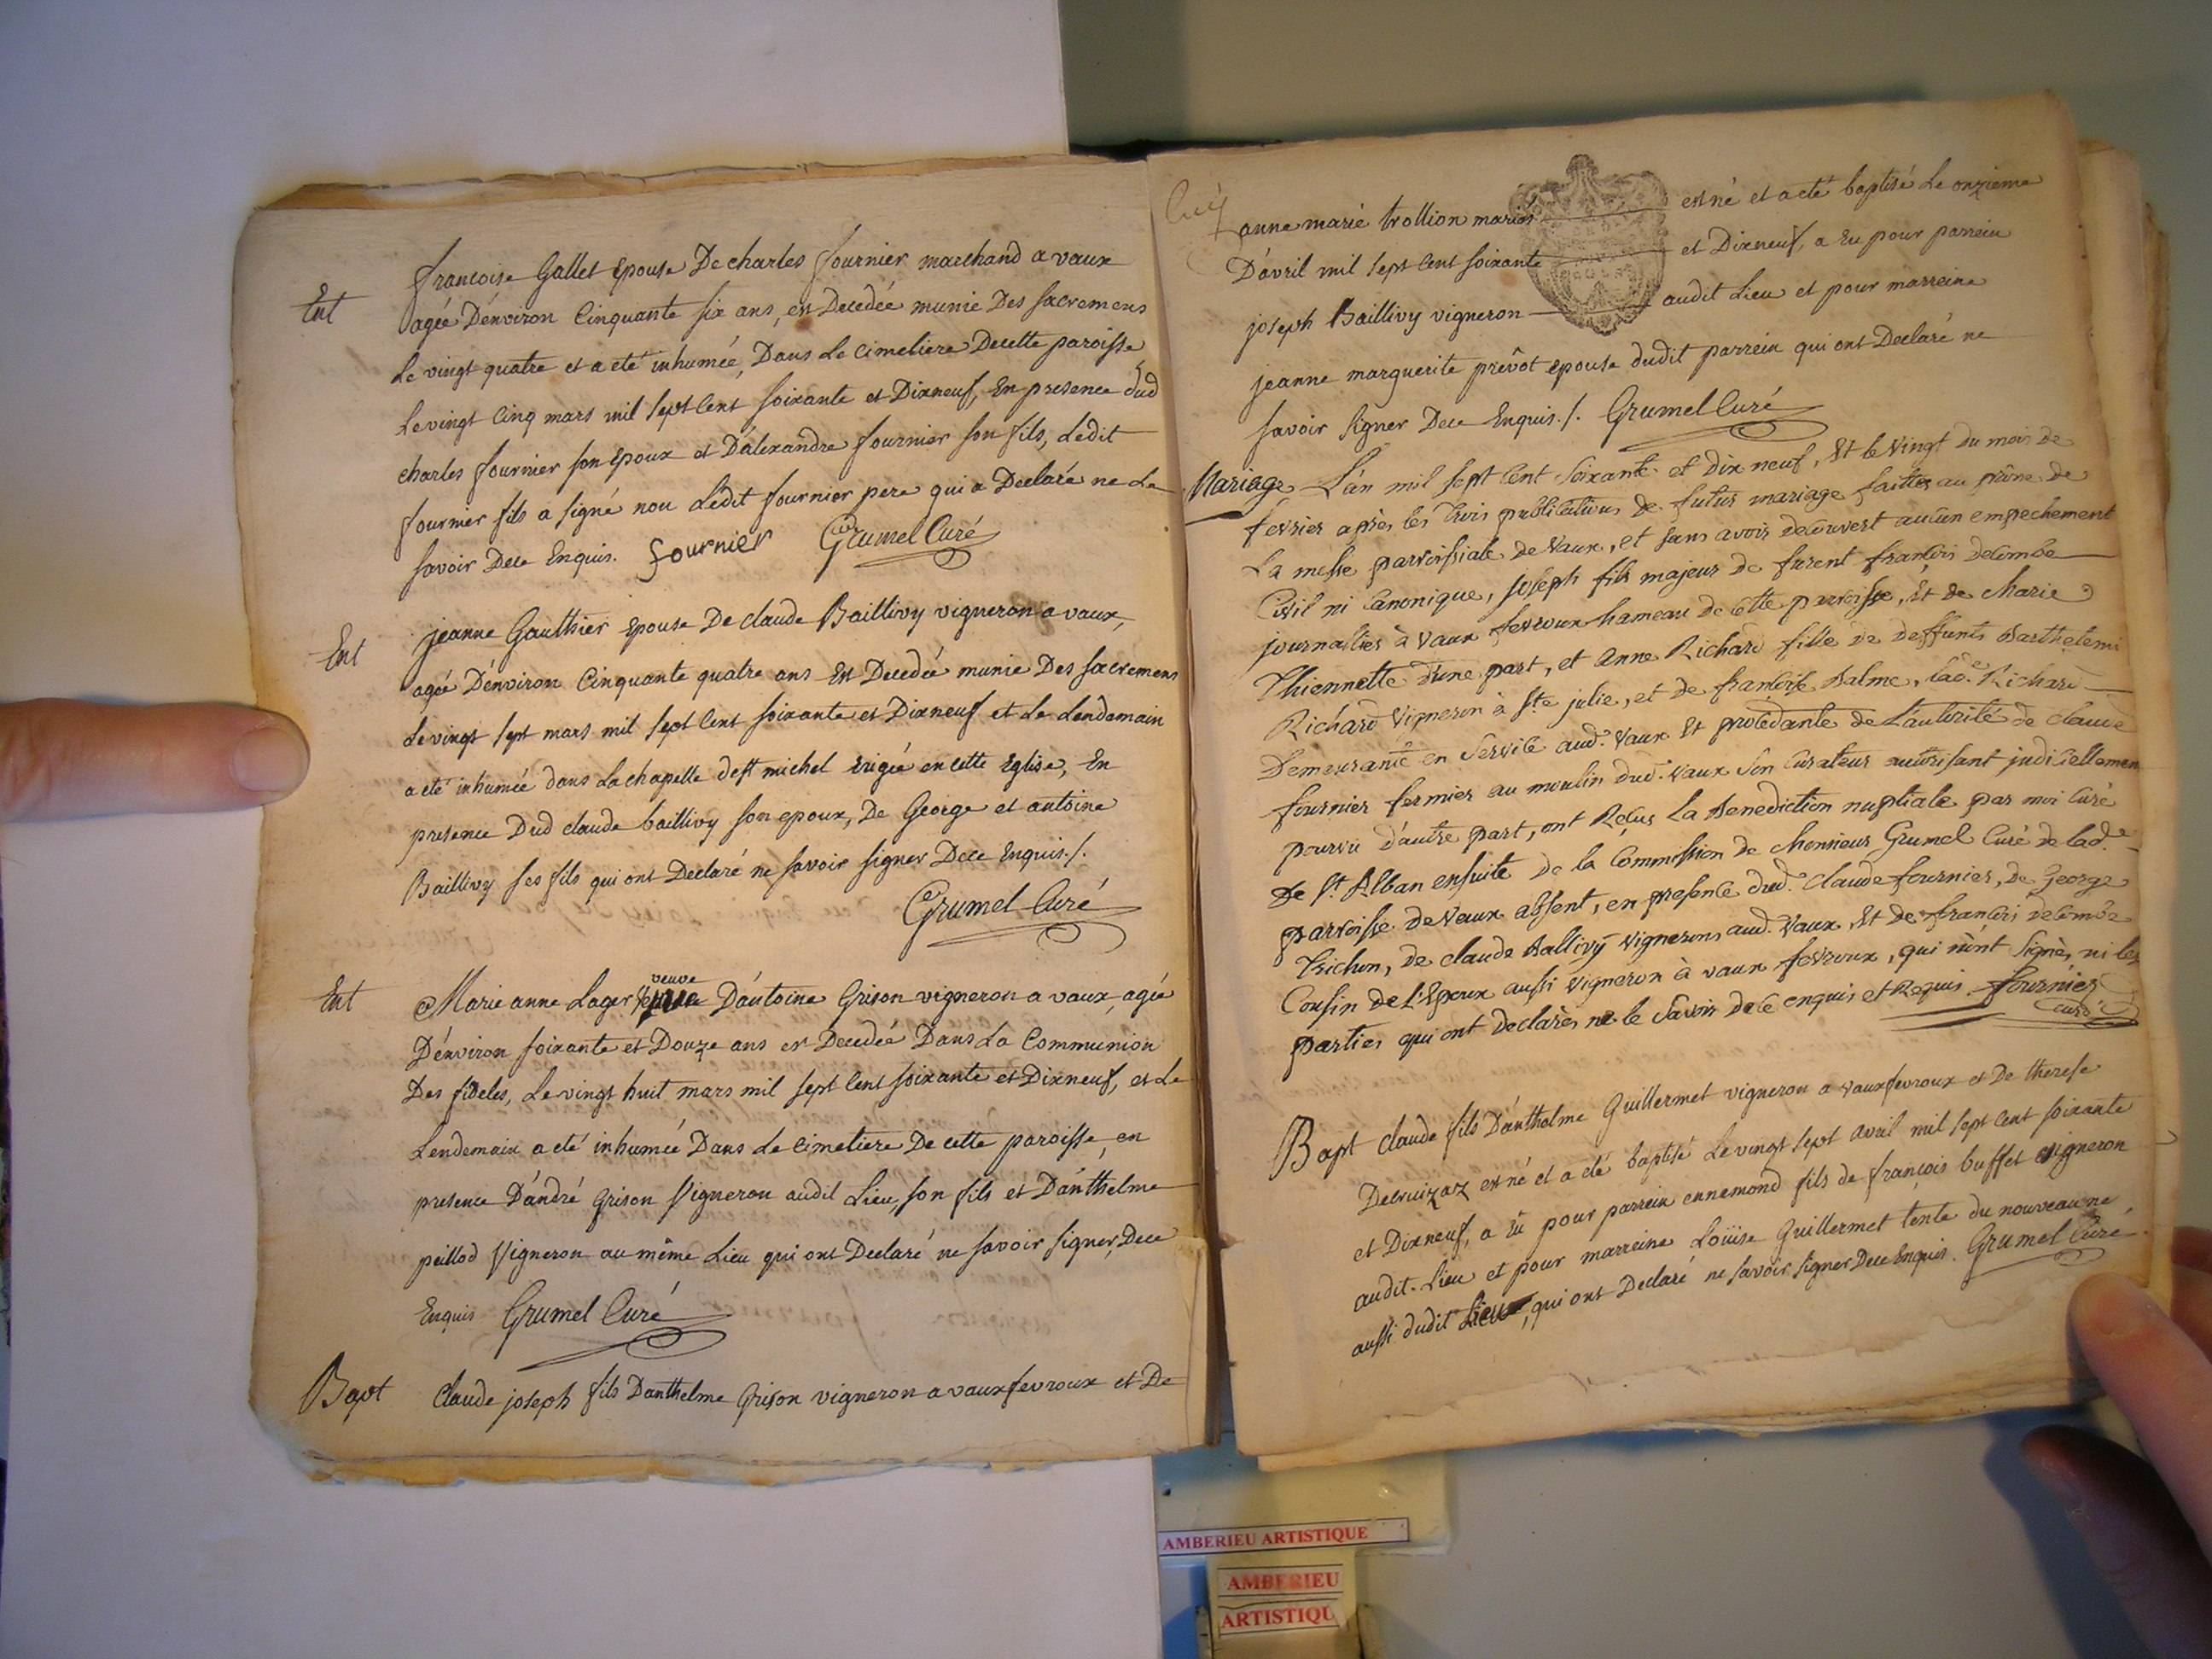 Ent
francoise Gallet Epouse De charles fournier marchand a vaux
agée D'énviron Cinquante six ans, est Decedée munie Des sacremens
Le vingt quatre et a eté inhumée, Dans Le Cimetiere Decette paroisse
Le vingt Cinq mars mil sept Cent soixante et Dixneuf, En presence dud
charles fournier son Epoux et D'alexandre fournier son fils, Ledit
fournier fils a signé non Ledit fournier pere qui a Declaré ne Le
savoir Dece Enquis. fournier Grumel Curé
Ent
jeanne Gauthier Epouse De claude Baillivy vigneron a vaux,
agée D'énviron Cinquante quatre ans Est Decedée munie Des sacremens
Le vingt sept mars mil sept Cent soixante et Dixneuf et Le Lendemain
a eté inhumée dans La chapelle de st michel Erigée en cette Eglise, En
presence Dud claude baillivy son epoux, De George et antoine
Baillivy ses fils qui ont Declaré ne savoir signer Dece Enquis./.
Grumel Curé
Ent
veuve
Marie anne Lager D'antoine Grison vigneron a vaux, agée
D'énviron soixante et Douze ans est Decedée Dans La Communion
Des fideles, Le vingt huit mars mil sept Cent soixante et Dixneuf, et Le
Lendemain a eté inhumée Dans Le Cimetiere De cette paroisse, en
presence D'andré Grison Vigneron audit Lieu, son fils et D'anthelme
peillod Vigneron au même Lieu qui ont Declaré ne savoir signer, Dece
Enquis Grumel Curé
Bapt
Claude joseph fils D'anthelme Grison vigneron a vauxfevroux et De
anne marie trollion mariés est né et a eté baptisé Le onzieme
D'avril mil sept Cent soixante et Dixneuf, a Eu pour parrein
joseph Baillivy vigneron audit Lieu et pour marreine
jeanne marguerite prevôt epouse dudit parrein qui ont Declaré ne
savoir signer Dece Enquis./. Grumel Curé
Mariage
L'an mil sept Cent soixante et dix neuf, Et le vingt du mois de
fevrier après les trois publications de futur mariage faittes au prône de
La messe parroissiale de Vaux, et sans avoir decouvert aucun empechement
Civil ni Canonique, joseph fils majeur de furent françois decombe
journallier à Vaux fevroux hameau de Cette parroisse, Et de Marie
Thiennette d'une part, et Anne Richard fille de deffunts Barthelemi
Richard Vigneron à ste julie, et de françoise Balme, lad.e Richard
Demeurante en Service aud. Vaux Et procedante de L'autorité de claude
fournier fermier au moulin dud. Vaux Son Curateur autorisant judiciellement
pourvu d'autre part, ont Reçus La Benediction nuptiale par moi Curé
De St. Alban ensuite de la Commission de Monsieur Grumel Curé de lad.e
parroisse de Vaux absent, en presence dud. Claude fournier, de George
Trichon, de claude Ballivy vignerons aud. Vaux, Et de francois decombe
Cousin de L'Epoux aussi vigneron à vaux fevroux, qui n'ont Signès, ni les
parties qui ont declarès ne le savoir de ce enquis et Requis. fournier
Curé
Bapt
Claude fils D'anthelme Guillermet vigneron a vauxfevroux et De therese
Debruizaz est né et a eté baptisé Le vingt sept avril mil sept Cent soixante
et Dixneuf, a Eu pour parrein ennemond fils de françois buffet vigneron
audit Lieu et pour marreine Loüise Guillermet tente du nouveau ne
aussi dudit Lieu, qui ont Declaré ne savoir signer Dece Enquis. Grumel Curé
AMBERIEU ARTISTIQUE
AMBERIEU
ARTISTIQU